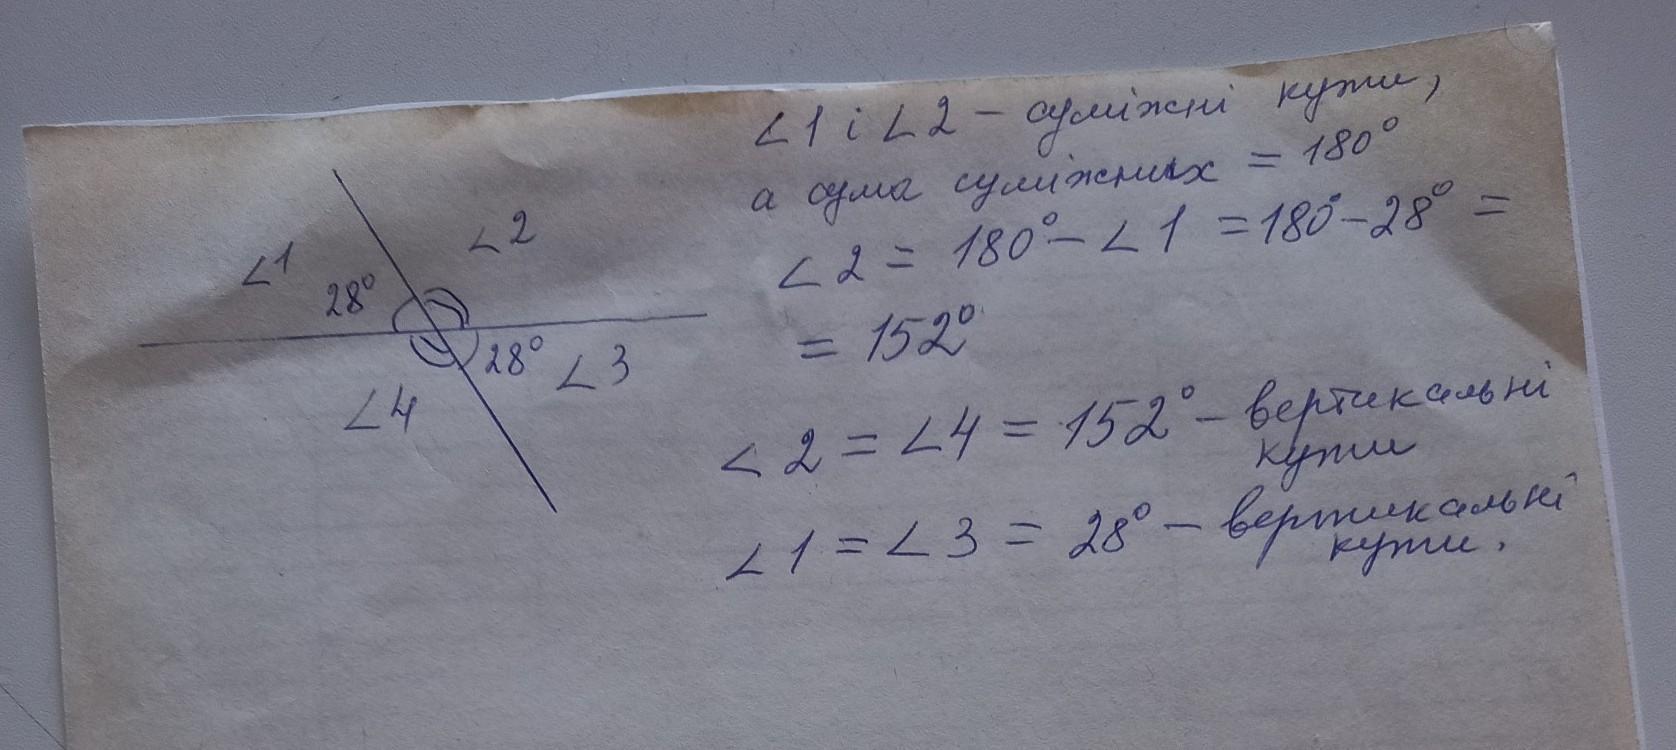 ∠1
∠2
28°
28°
∠3
∠4
∠1 і ∠2 – суміжні кути,
а сума суміжних = 180°
∠2 = 180° – ∠1 = 180° – 28° =
= 152°
∠2 = ∠4 = 152° – вертикальні
кути
∠1 = ∠3 = 28° – вертикальні
кути.